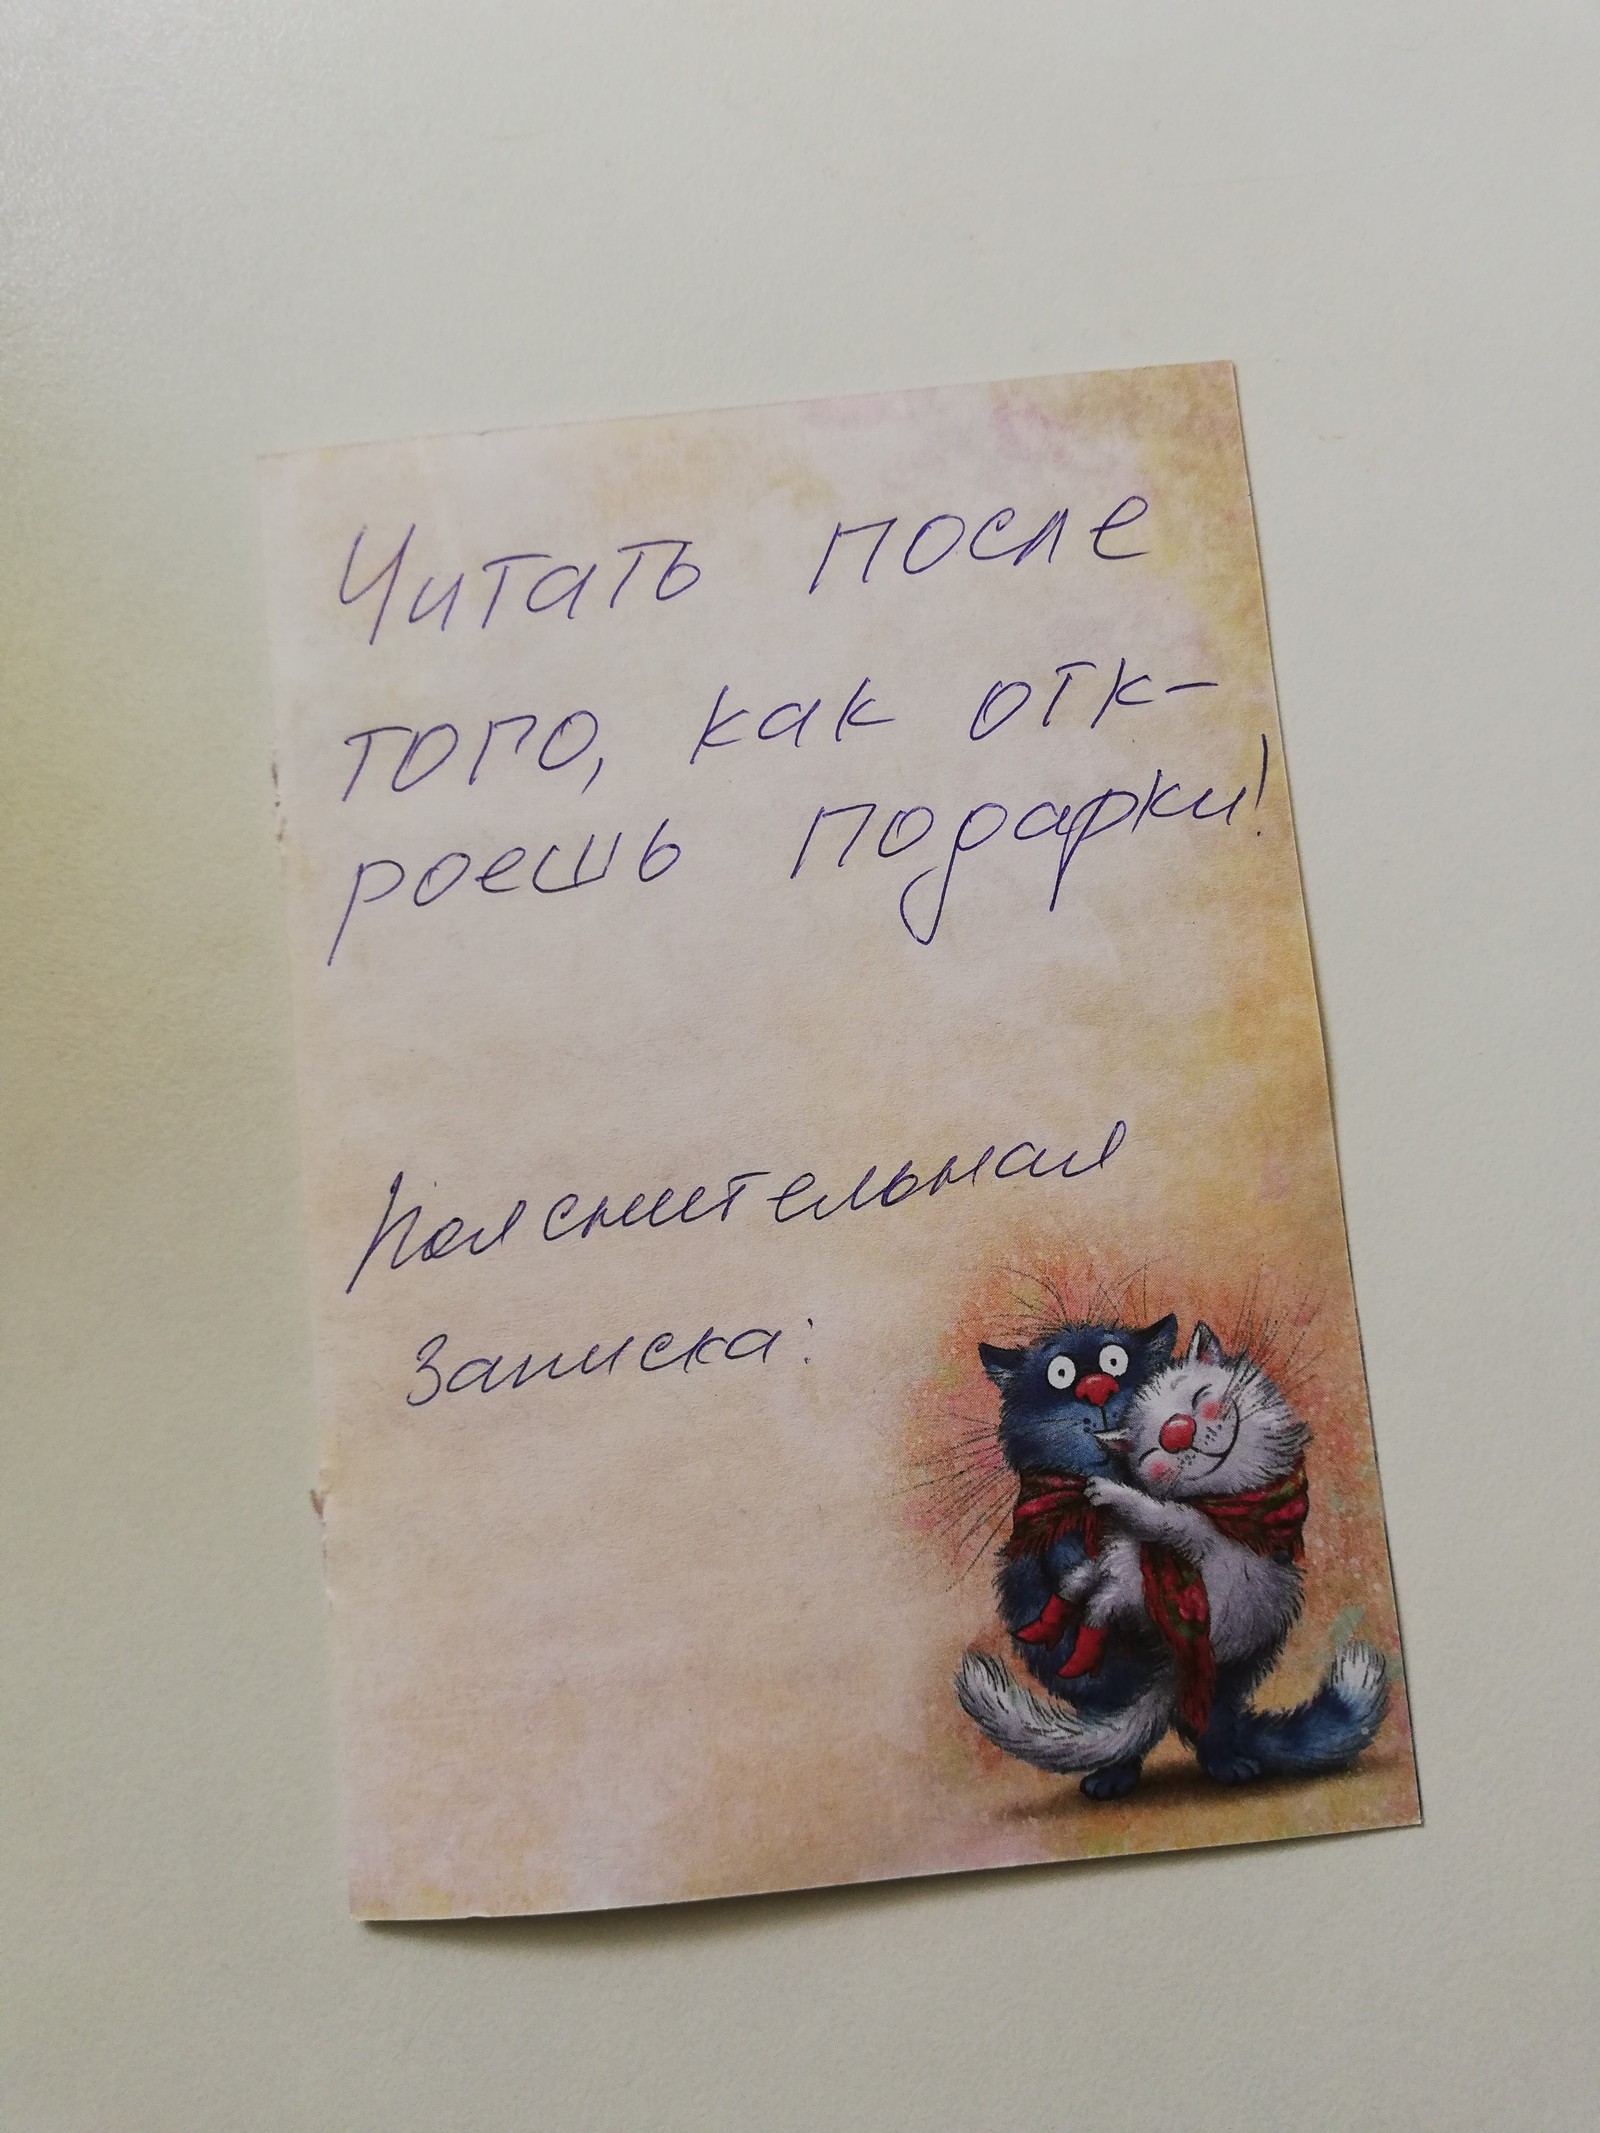 Читать после
того, как отк-
роешь подарки!
Пояснительная
записка: